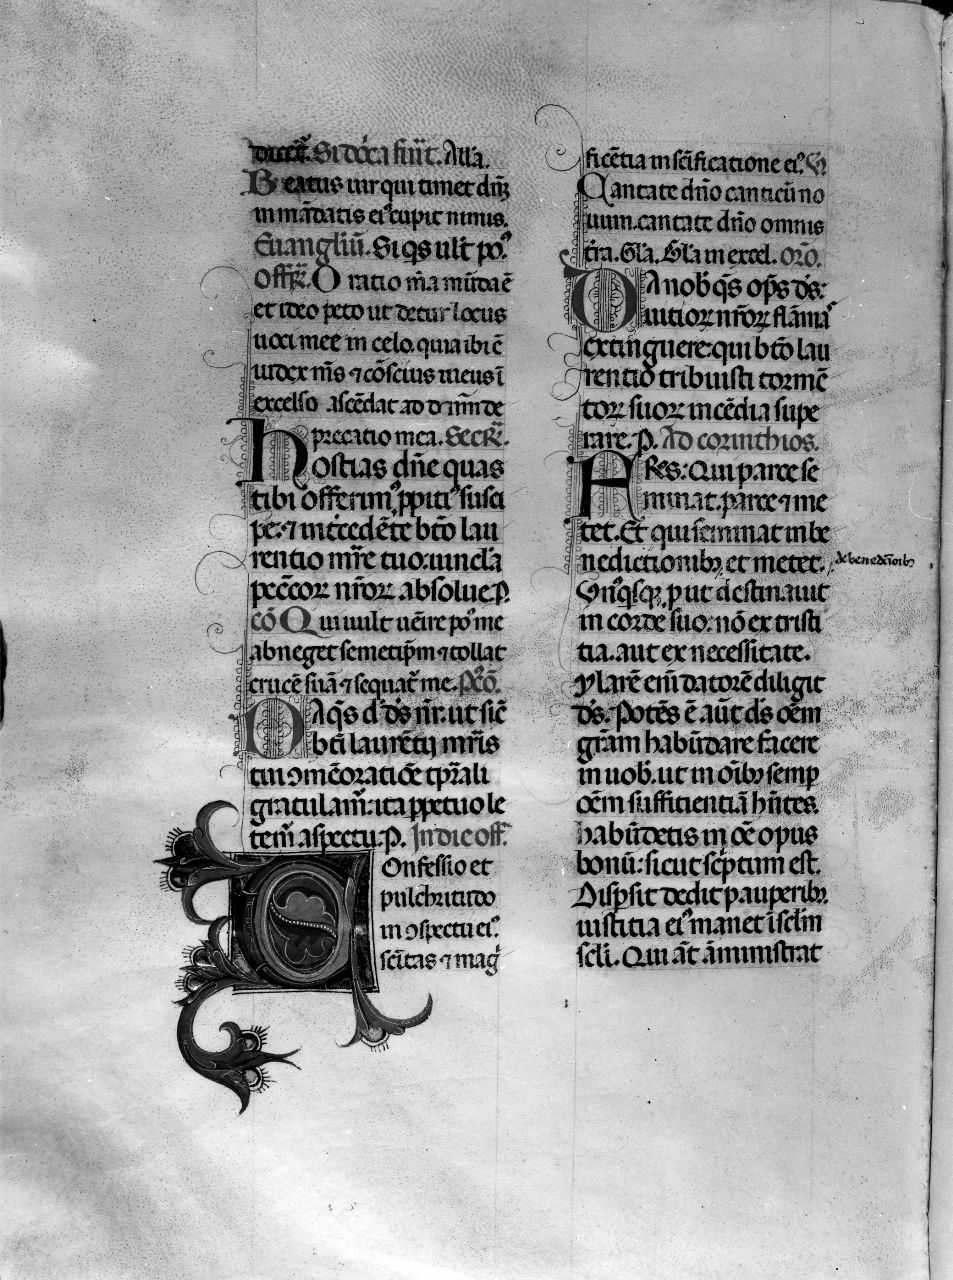 dicet᷑. Si dn̄ica fiūit. All'a.
Beatus uir qui timet dn̄ꝫ
in mādatis ei᷒ cupit nimis.
Euangliū. Si q̄s ult̄ po᷒
Offr̄. Oratio m̄a mūda ē
et ideo peto ut detur locus
uoci mee in celo. quia ibi ē
iudex m̄s ⁊ cōscius meus ī
excelso ascēdat ad dn̄m de
precatio mea. Secr̄.
Hostias dn̄e quas
tibi offerim᷒ ꝓpiti᷒ susci
pe. ⁊ int̄cedēte bt̄o lau
rentio mr̄e tuo. uincl'a
pec̄coꝝ nr̄oꝝ absolue. P.
cō Qui uult uēire po᷒ me
abneget semetip̄m ⁊ tollat
crucē suā ⁊ sequat᷑ me. P᷒cō.
Da q̄s d d̄s nr̄. ut sic̄
bt̄i laurētij mr̄is
tui ꝯmēoratiōe tp̄rali
gratulam᷑. ita ꝑpetuo le
tem᷑ aspectu. P. In die off.
Confessio et
pulchritudo
in ꝯspectu ei᷒.
sc̄itas ⁊ mag
ficētia in sc̄ificatione ei᷒. V̄
Cantate dn̄o canticū no
uum. cantate dn̄o omnis
t̄ra. Gl'a. Gl'a in excel. Oro.
Da nob̄ q̄s op̄s d̄s:
uitioꝝ nr̄oꝝ flāmas
extinguere: qui bt̄o lau
rentio tribuisti tormē
toꝝ suoꝝ incēdia supe
rare. P. Ad corinthios.
Fres: Qui parce se
minat. parce ⁊ me
tet. Et qui seminat in be
nedictionibꝫ, et metet.
de benedc̄ionibꝫ
Vn᷒q̄sqꝫ. prout destinauit
in corde suo: nō ex tristi
tia. aut ex necessitate.
ylarē eīm datorē diligit
d̄s. Potēs ē aūt d̄s oēm
gr̄am habūdare facere
in uob̄. ut in oībꝫ semꝑ
oēm sufficientiā hn̄tes.
habūdetis in oē opus
bonū: sicut sc̄ptum est.
Disp̄sit dedit pauperibꝫ.
iustitia ei᷒ manet ī sc̄lm̄
sc̄li. Qui aūt amministrat